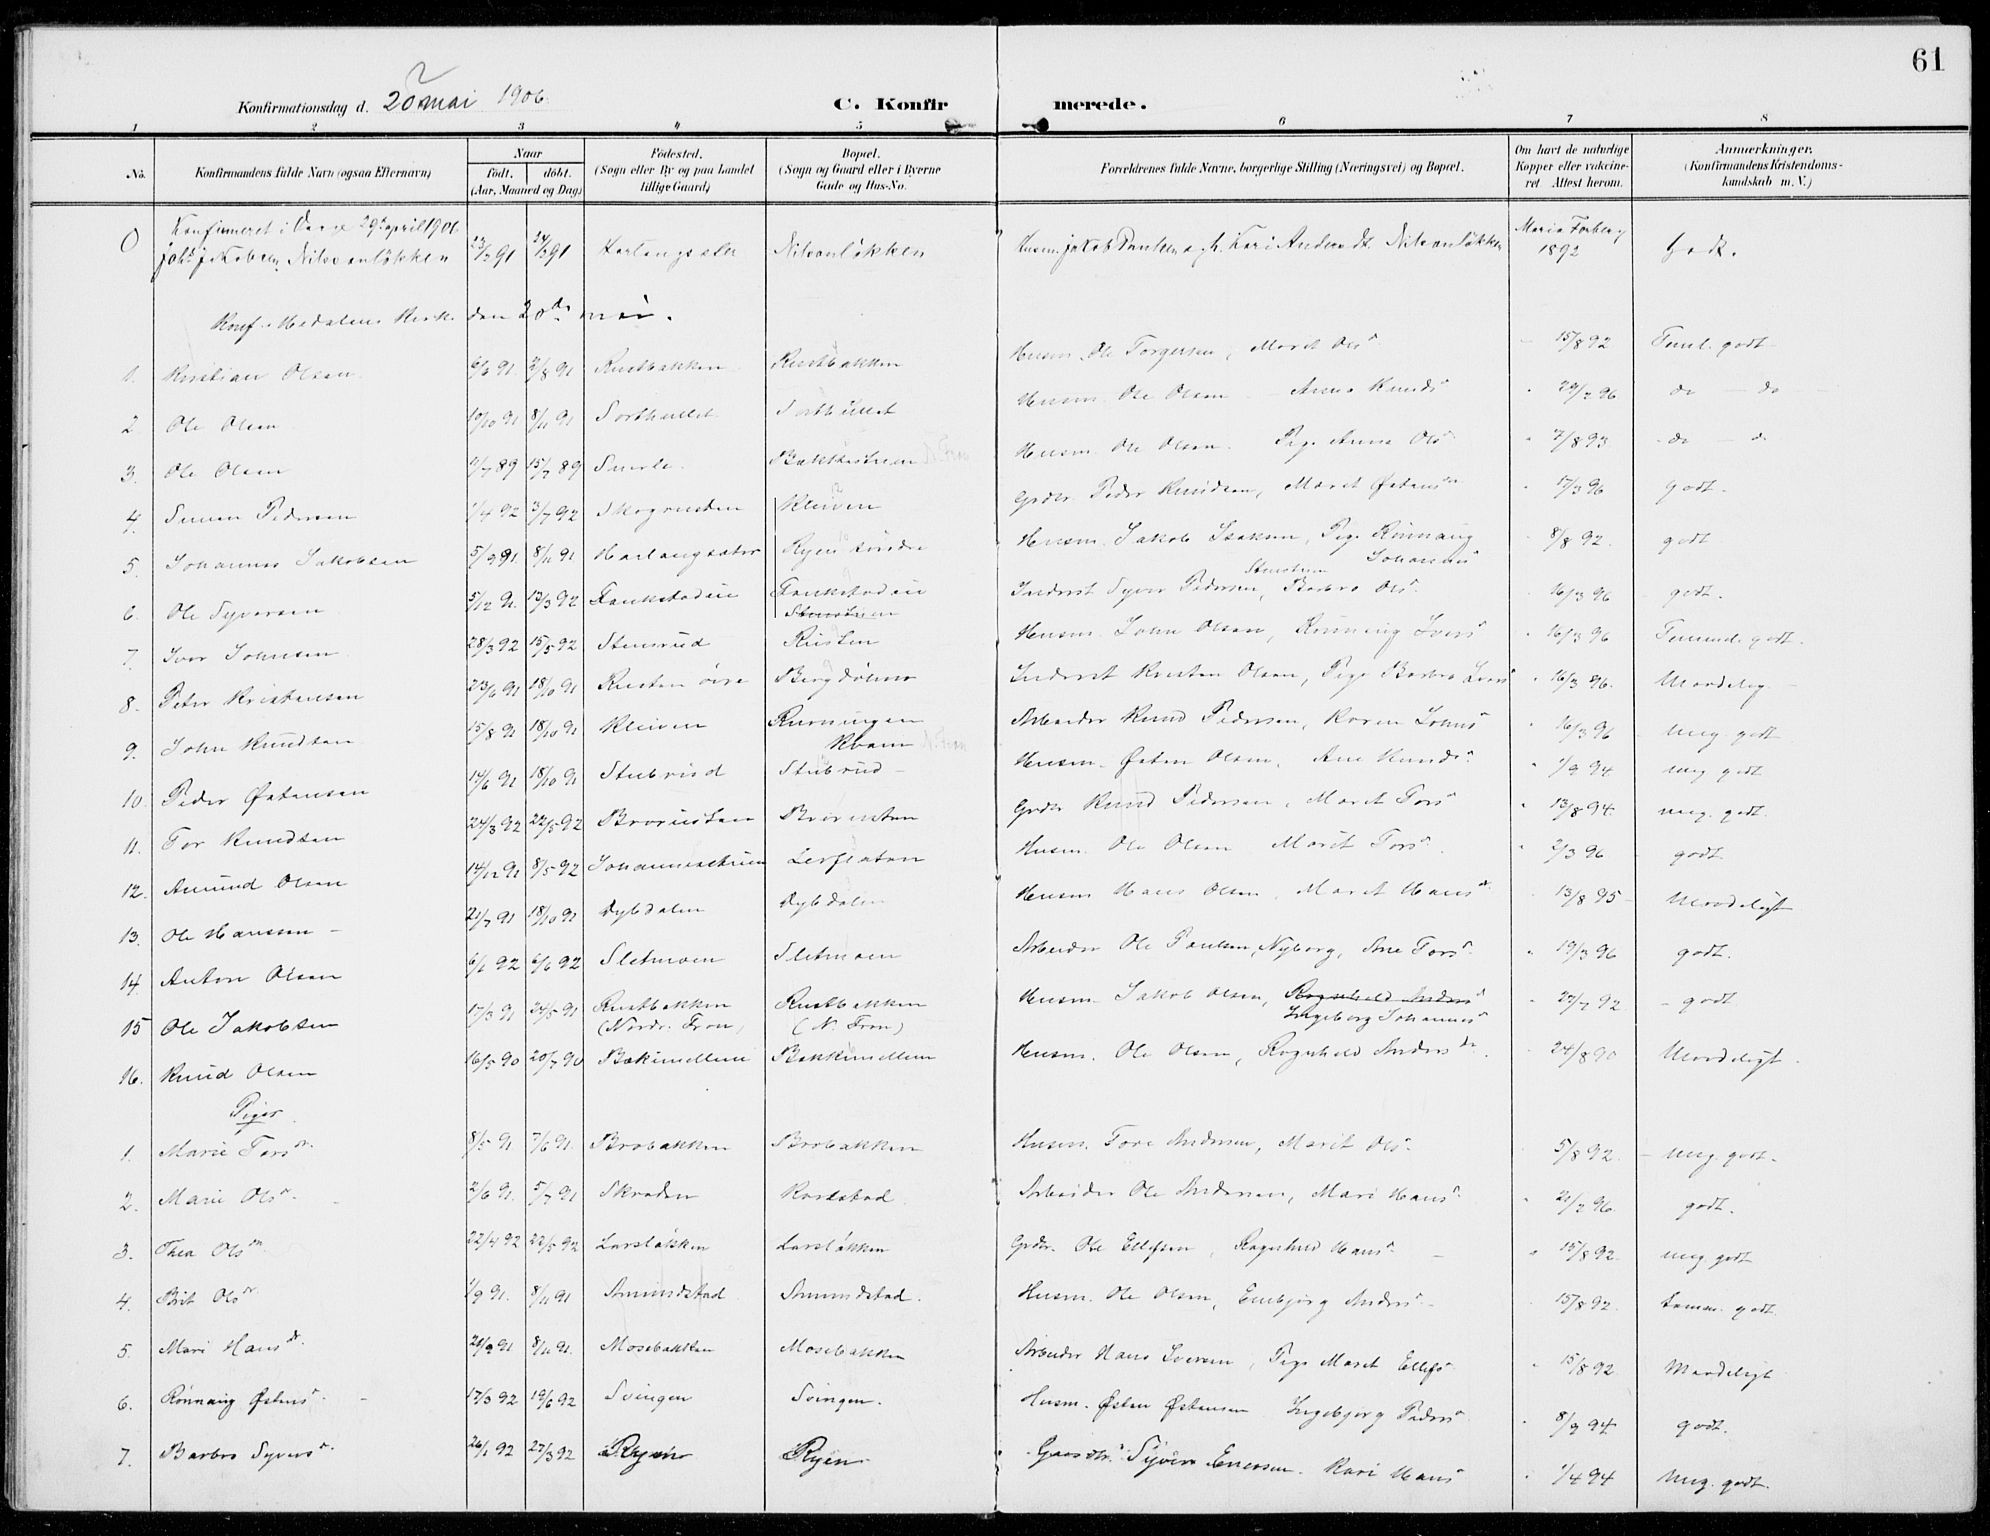 61
Konfirmationsdag d. 20 mai 1906. C. Konfirmerede.
1 2 3 4 5 6 7 8
No. Konfirmandens fulde Navn (ogsaa Efternavn) Naar født. døbt. (Aar, Maaned og Dag) Fødested. (Sogn eller By og paa Landet tillige Gaard) Bopæl. (Sogn og Gaard eller i Byerne Gade og Hus-No. Forældrenes fulde Navne, borgerlige Stilling (Næringsvei) og Bopæl. Om havt de naturlige Kopper eller vakcineret. Attest herom. Anmærkninger. (Konfirmandens Kristendomskundskab m. V.)
Konfirmeret i 29de april 1906
0 Jakobsen Nilsonløkken 91 91 Nilsonløkken Husm. Jakob Kari Nilsonløkken Maria Forberg 1892 godt.
Konf. i Hedalens Kirke den 20de mai.
1. Kristian Olsen 6/6 91 2/8 91 Rustbakken Rustbakken Husm. Ole Torgersen, Marit Olsd 15/8 92 Teml. godt
2 Ole Olsen 10/10 91 8/11 91 Sorthullet Sorthullet Husm. Ole Olsen Anne Knudsd 29/2 96 do do
3. Ole Olsen 1/7 89 15/7 89 Suerle Bakkestuen N. Fron Husm. Ole Olsen. Pige Anne Olsd 7/8 93 do do
4. Simen Pedersen 1/4 92 3/7 92 Skogrusten Kleiven Grdbr. Peder Knudsen, Marit Østensdtr 17/3 96 godt.
5. Johannes Jakobsen 5/9 91 8/11 91 Harlaugsæter Ryen søndre Husm. Jakob Isaksen, Pige Rønnaug Johannesd 8/8 92 godt
6. Ole Syversen 5/12 91 13/3 92 Fankstadeie Fankstadeie Stenstuen Inderst Syver Pedersen, Stenstuen Barbro Olsd 16/3 96 godt.
7. Ivar Johnsen 28/3 92 15/5 92 Stensrud Rusten Husm. John Olsen, Rønnaug Iversd 16/3 96 Temmel. godt.
8. Peter Kristensen 23/6 91 18/10 91 Rusten øvre Bergdølmo Inderst Kristen Olsen, Pige Barbro Iversd 16/3 96. Maadelig
9. John Knudsen 15/8 91 18/10 91 Kleiven Rusningen Kvam N. Fron Arbeider Knud Pedersen, Karen Johnsd 16/3 96 meg. godt
10. Peder Østensen 14/6 91 18/10 91 Stubrud Stubrud Husm. Østen Olsen, Ane Knudsd 1/9 94 meg godt
11. Tor Knudsen 24/3 92 22/5 92 Brorusten Brorusten Grdbr Knud Pedersen, Marit Torsd 13/8 94 meg. godt.
12. Amund Olsen 14/12 91 8/5 92 Johannesstuen Lerflaten Husm. Ole Olsen Marit Torsd 2/3 96 godt
13. Ole Hansen 21/7 91 18/10 91 Dybdalen Dybdalen Husm Hans Olsen, Marit Hansd 13/8 95 Maadeligt
14. Anton Olsen 6/1 92 6/6 92 Sletmoen Sletmoen Arbeider Ole Paulsen, Nyborg, Ane Torsd 19/3 96 godt.
15 Ole Jakobsen 17/3 91 24/5 91 Rustbakken (Nordr. Fron) Rustbakken (N. Fron) Husm. Jakob Olsen, Ragnhild Andersd Ingeborg Johannesd 27/7 92 godt
16. Knud Olsen 16/5 90 20/7 90 Bakimellem Bakkimellem Husm. Ole Olsen, Ragnhild Andersdtr 24/8 90 Maadeligt.
Piger
1. Marie Torsdr. 8/5 91 7/6 91 Brobakken Brobakken Husm. Tore Andersen, Marit Olsd 5/8 92 meg. godt.
2. Marie Olsd. 2/6 91. 5/7 91 Skroden Karlstad Arbeider Ole Andersen, Mari Hansd 21/2 96 godt.
3. Thea Olsdtr 22/4 92 22/5 92 Larsløkken Larsløkken Grdbr. Ole Ellefsen, Ragnhild Hansd 15/8 92. meg. godt
4. Brit Olsdr. 1/9 91. 8/11 91 Amundstad Amundstad. Husm. Ole Olsen, Embjørg Andersd 15/8 92. temm. godt.
5. Mari Hansdr. 20/9 91 8/11 91. Mosebakken Mosebakken Arbeider Hans Iversen, Pige Marit Ellefsd 15/8 92 Maadeligt
6. Rønnaug Østensd. 17/3 92 19/6 92 Svingen Svingen. Husm. Østen Østensen Ingebjørg Pedersd 8/9 94 godt.
7. Barbro Syversd. 26/1 92 27/3 92 Ryen Ryen Gaardbr. Syver Enersen. Kari Hansd 1/4 94 Meg. godt.